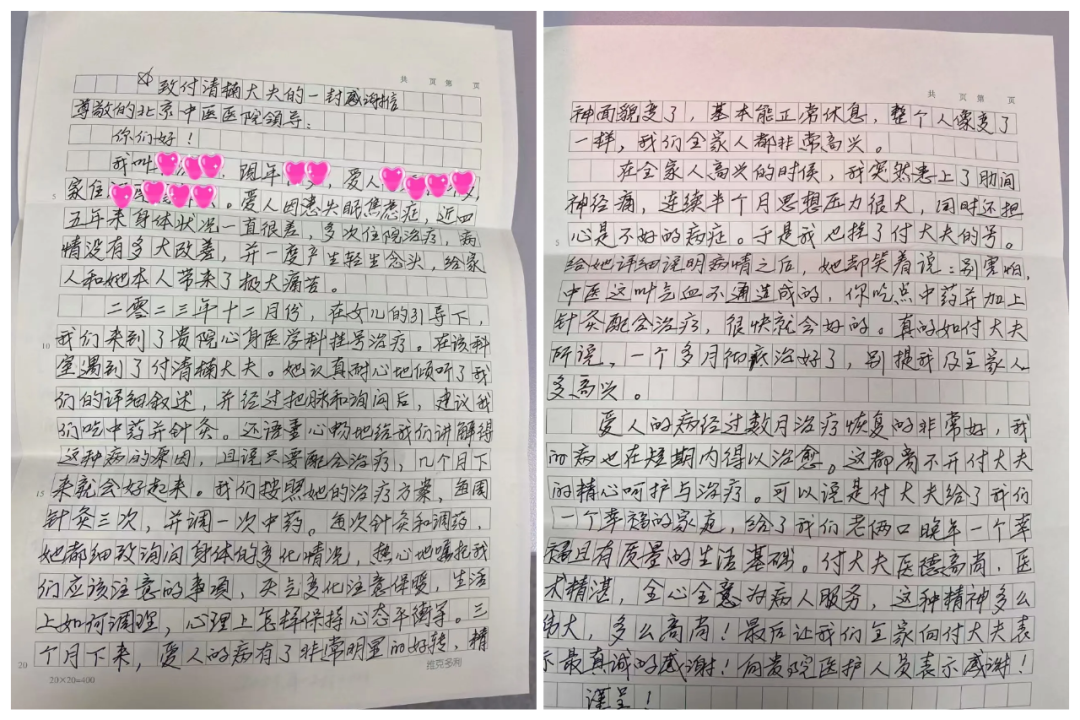 共 页 第 页
致付清楠大夫的一封感谢信
尊敬的北京中医医院领导：
你们好！
我叫 现年 爱人
家住 。爱人因患失眠焦虑症，近四
五年来身体状况一直很差，多次住院治疗，病
情没有多大改善，并一度产生轻生念头，给家
人和她本人带来了极大痛苦。
二零二三年十二月份，在女儿的引导下，
10 我们来到了贵院心身医学科挂号治疗。在该科
室遇到了付清楠大夫。她认真耐心地倾听了我
们的详细叙述，并经过把脉和询问后，建议我
们吃中药并针灸。还语重心畅地给我们讲解得
这种病的原因，且说只要配合治疗，几个月下
15 来就会好起来。我们按照她的治疗方案，每周
针灸三次，并调一次中药。每次针灸和调药，
她都细致询问身体的变化情况，热心地嘱托我
们应该注意的事项，天气变化注意保暖，生活
上如何调理，心理上怎样保持心态平衡等。三
20 个月下来，爱人的病有了非常明显的好转，精
20×20=400
共 页 第 页
神面貌变了，基本能正常休息，整个人像变了
一样，我们全家人都非常高兴。
在全家人高兴的时候，我突然患上了肋间
神经痛，连续半个月思想压力很大，同时还担
5 心是不好的病症。于是我也挂了付大夫的号。
给她详细说明病情之后，她却笑着说：别害怕，
中医这叫气血不通造成的，你吃点中药并加上
针灸配合治疗，很快就会好的。真的如付大夫
所说，一个多月彻底治好了，别提我及全家人
多高兴。
爱人的病经过数月治疗恢复的非常好，我
的病也在短期内得以治愈。这都离不开付大夫
的精心呵护与治疗。可以说是付大夫给了我们
一个幸福的家庭，给了我们老俩口晚年一个幸
福且有质量的生活基础。付大夫医德高尚，医
术精湛，全心全意为病人服务，这种精神多么
伟大，多么高尚！最后让我们全家向付大夫表
示最真诚的感谢！向贵院医护人员表示感谢！
谨呈！